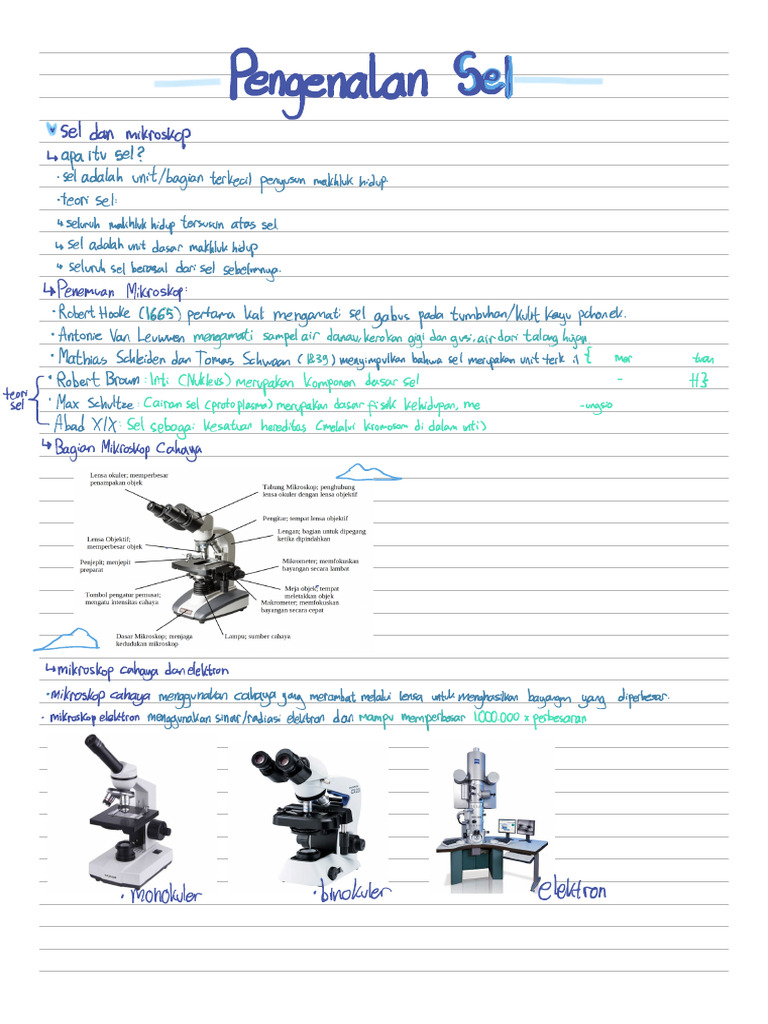 Pengenalan Sel
sel dan mikroskop
↳ apa itu sel?
· sel adalah unit/bagian terkecil penyusun makhluk hidup.
· teori sel:
↳ seluruh makhluk hidup tersusun atas sel
↳ sel adalah unit dasar makhluk hidup
↳ seluruh sel berasal dari sel sebelmnya.
↳ Penemuan Mikroskop:
· Robert Hooke (1665) pertama kali mengamati sel gabus pada tumbuhan/kulit kayu pohon ek.
· Antonie Van Leuwwen mengamati sampel air danau, kerokan gigi dan gusi, air dari talang hujan.
· Mathias Schleiden dan Tomas Schwann (1839) menyimpulkan bahwa sel merupakan unit
teori sel
· Robert Brown: Inti (Nukleus) merupakan komponen dasar sel
· Max Schultze: Cairan sel (protoplasma) merupakan dasar fisik kehidupan,
Abad XIX: Sel sebagai kesatuan hereditas (melalui kromosom di dalam inti)
↳ Bagian Mikroskop Cahaya
Lensa okuler; memperbesar
penampakan objek
Tabung Mikroskop; penghubung
lensa okuler dengan lensa objektif
Pengitar; tempat lensa objektif
Lengan; bagian untuk dipegang
ketika dipindahkan
Lensa Objektif;
memperbesar objek
Penjepit; menjepit
preparat
Mikrometer; memfokuskan
bayangan secara lambat
Meja objek; tempat
meletakkan objek
Tombol pengatur pemusat;
mengatu intensitas cahaya
Makrometer; memfokuskan
bayangan secara cepat
Dasar Mikroskop; menjaga
kedudukan mikroskop
Lampu; sumber cahaya
↳ mikroskop cahaya dan elektron
· mikroskop cahaya menggunakan cahaya yang merambat melalui lensa untuk menghasilkan bayangan yang diperbesar.
· mikroskop elektron menggunakan sinar/radiasi elektron dan mampu memperbesar 1.000.000 x perbesaran
· monokuler
· binokuler
elektron